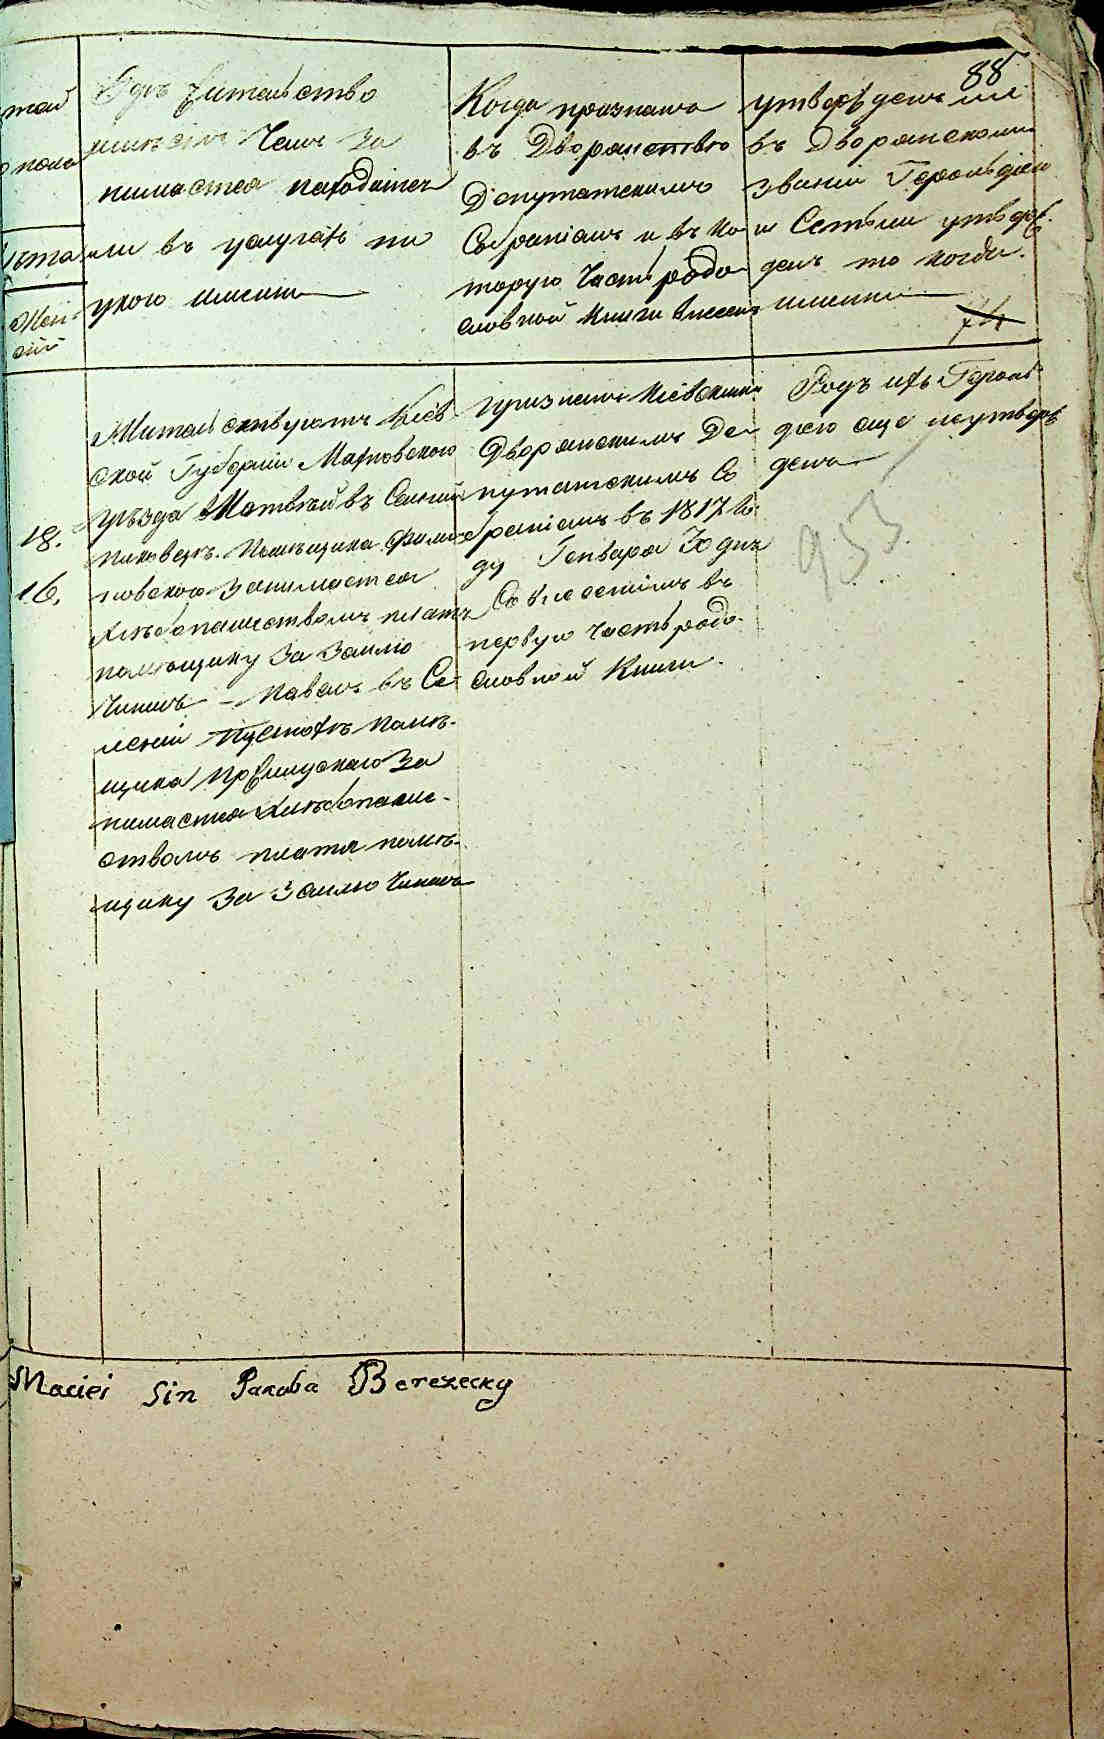 88
тай
Гдѣ жительство
имѣетъ Чемъ За
нимается находится
ли въ услугахъ на
укого именно
Когда признанъ
въ Дворянство
Депутатскимъ
Собраніемъ и въ Ко
торую Часть родо
словной книги внесенъ
утвержденъ ли
въ Дворянскомъ
званіи Герольдіею
и Естьли утверж.
денъ то когда
именно
74
Жен
скій
18.
16.
Жительствуютъ Кіев
ской Губерніи Махновскаго
уѣзда Матвѣй въ Селеніи
Помѣщика
Занимается
Хлѣбопашествомъ платя
помѣщику За Землю
Чиншъ – Павелъ въ Се
леніи Пустохѣ помѣ-
щика За
нимается Хлѣбопаше-
ствомъ платя помѣ-
щику За Землю Чиншъ
Признанъ Кіевскимъ
Дворянскимъ Де
путатскимъ Со
браніемъ въ 1817 го
ду Генваря 30 дня
Со внесеніемъ въ
первую Часть родо-
словной Книги.
Родъ ихъ Героль
діею еще неутверж
денъ
953
Maciei Sin Jakoba Berezecky